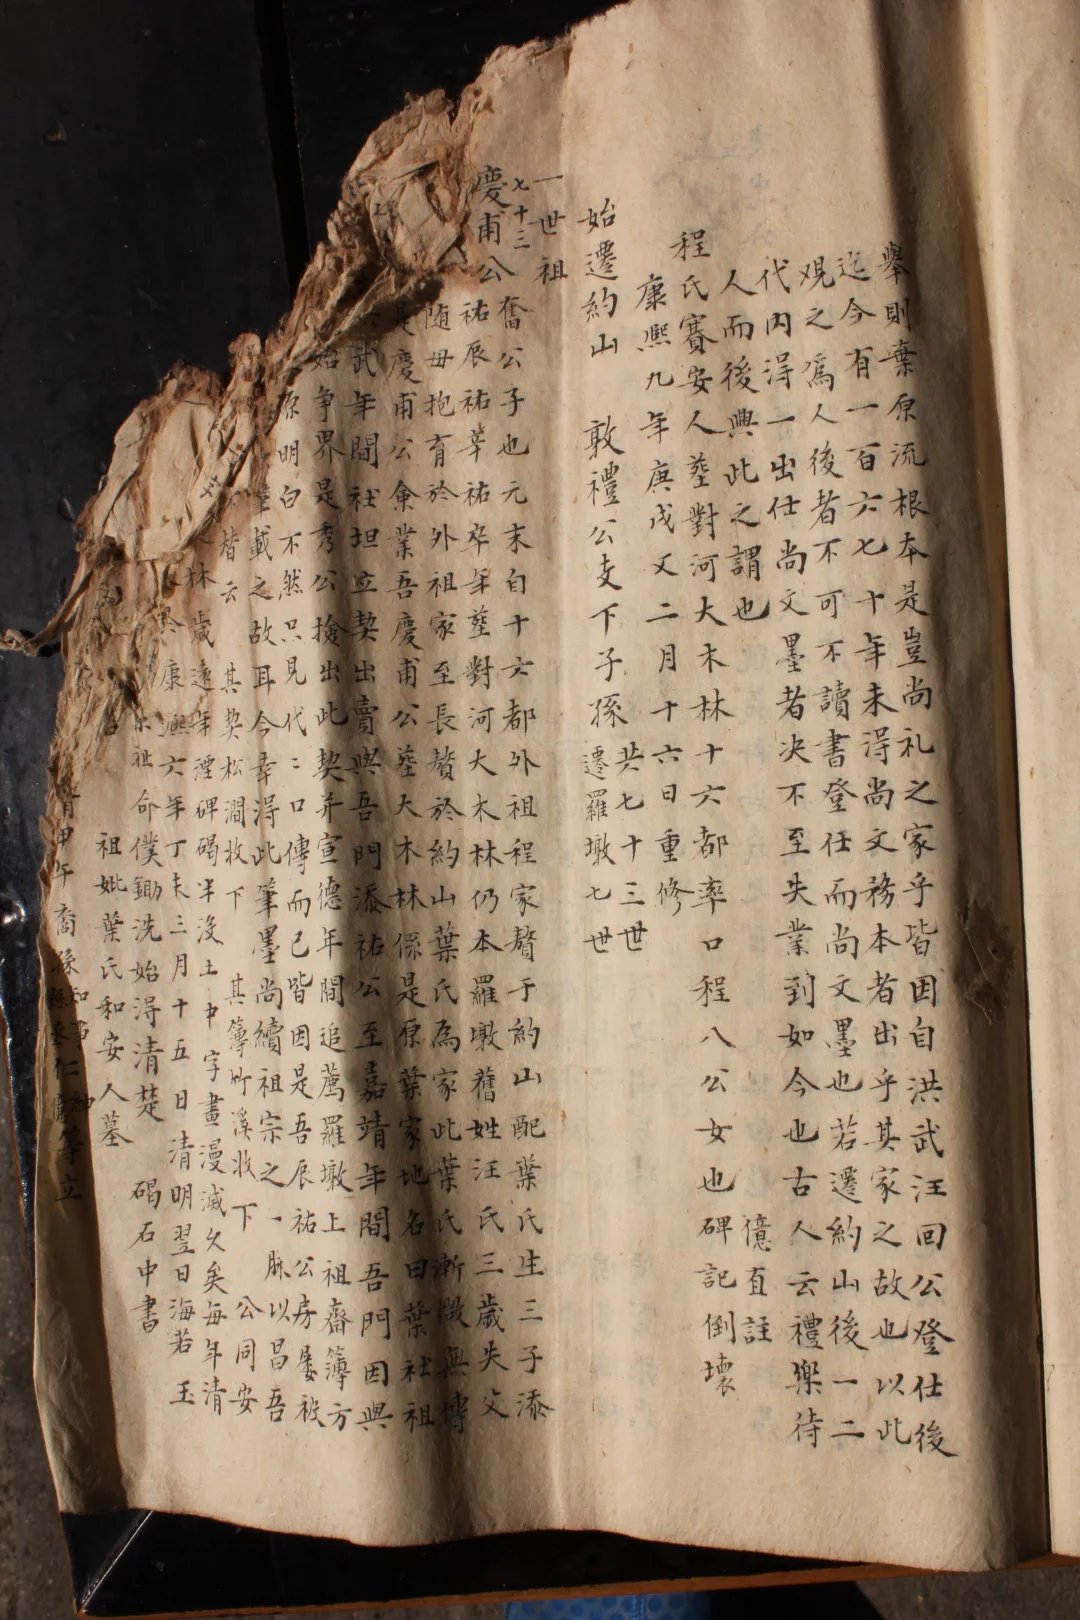 舉則棄原流根本是豈尚礼之家乎皆因自洪武汪回公登仕後
迄今有一百六七十年未得尚文務本者出乎其家之故也以此
觀之爲人後者不可不讀書登仕而尚文墨也若遷約山後一二
代内得一出仕尚文墨者决不至失業到如今也古人云禮樂待
人而後興此之謂也
億直註
程氏賽安人塟對河大木林十六都率口程八公女也碑記倒壞
康熙九年庚戌又二月十六日重修
始遷約山 敦禮公支下子孫遷羅墩七世
共七十三世
一世祖
七十三
慶甫公
奮公子也元末自十六都外祖程家贅于約山配葉氏生三子添
祐辰祐莘祐卒年塟對河大木林仍本羅墩舊姓汪氏三歲失父
随母抱育於外祖家至長贅於約山葉氏為家此葉氏漸微無傳
是慶甫公僉業吾慶甫公塟大木林係是原葉家地名曰葉社祖
武年間社坦立契出賣與吾門添祐公至嘉靖年間吾門因與
始爭界是秀公撿出此契并宣德年間追薦羅墩上祖齋簿方
原明白不然只見代〻口傳而已皆因是吾辰祐公房屡被
載之故耳今幸得此筆墨尚續祖宗之一脉以昌吾
替云 其契松澗收下 其簿竹溪收下 公同安
林歲遠年湮碑碣半没土中字畫漫滅久矣每年清
康熙六年丁未三月十五日清明翌日海若玉
祉命僕鋤洗始得清楚 碣石中書
祖妣葉氏和安人墓
甲午裔孫知事
縣丞仁
等立